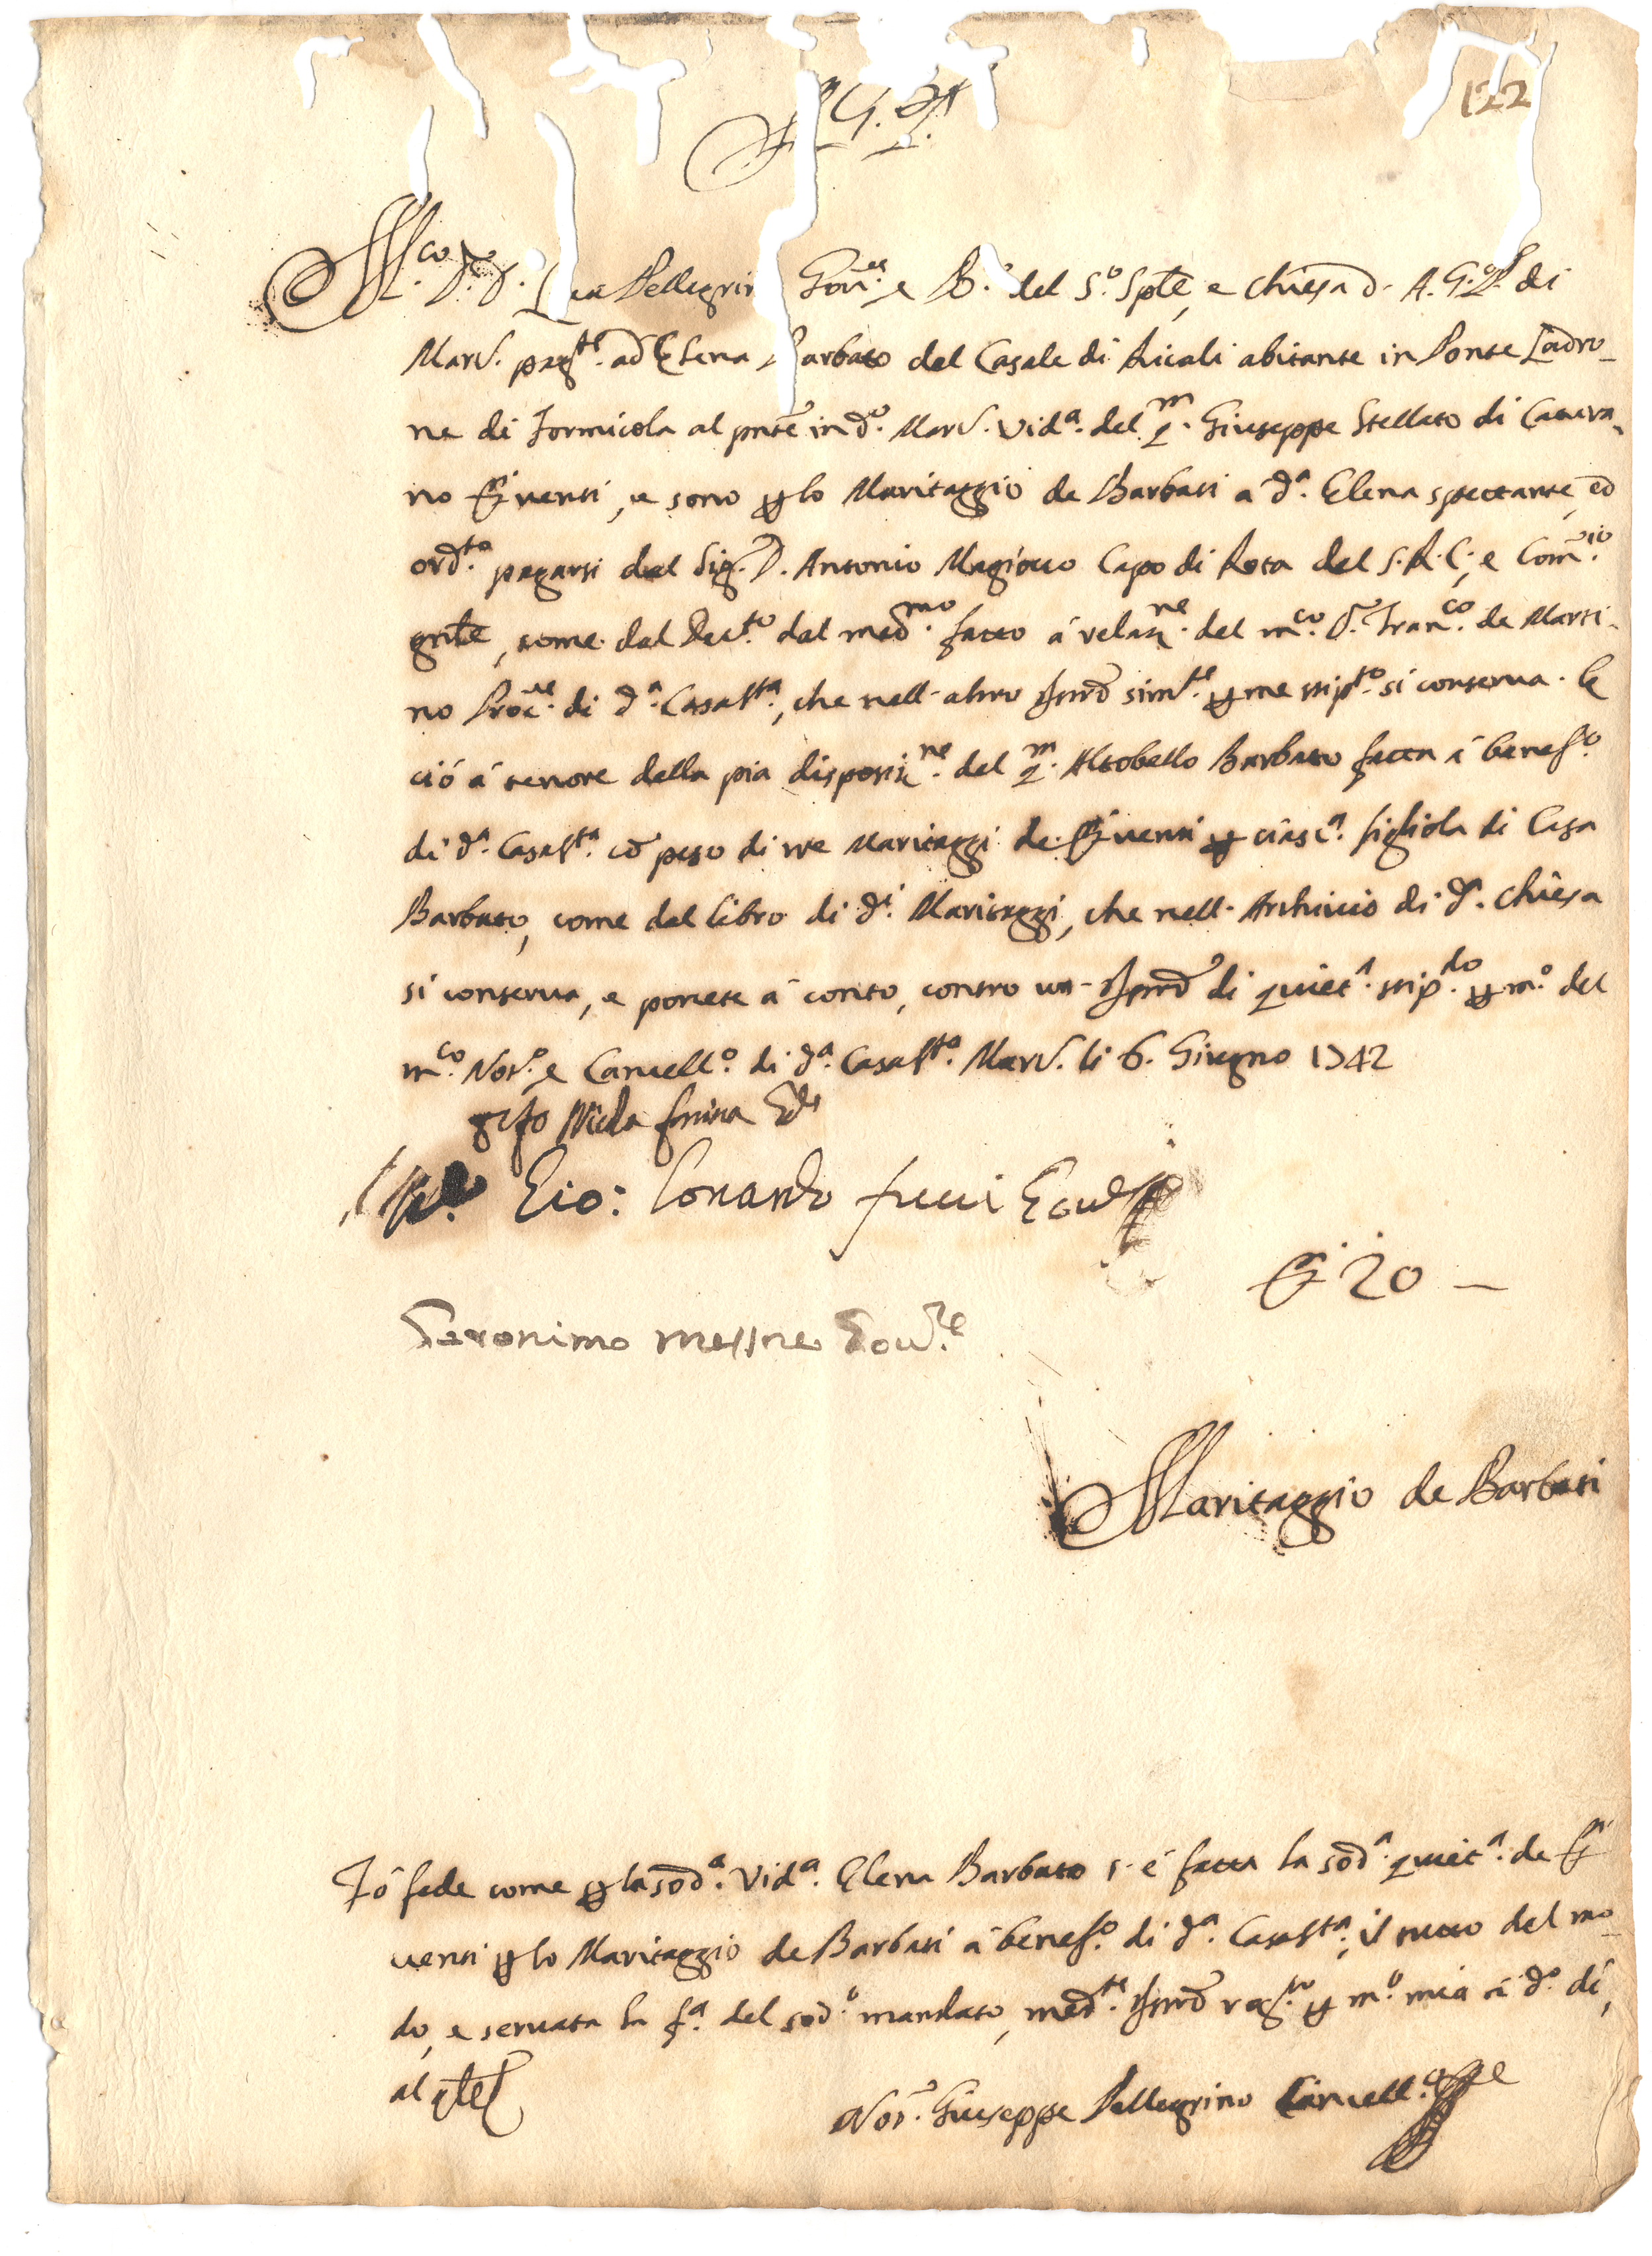 A. G. P.
122
M.co D.r D. Luca Pellegrin Gov.re e B.o del S.o Sple, e Chiesa d. A. G. P. di
Mard. pag.te ad Elena Barbato del Casale di Licali abitante in Ponte Ladro-
ne di Formicola al pnte in d.o Mard. vid.a del q.m Giuseppe Stellato di Caniva-
no d.ti venti, e sono p lo Maritaggio de Barbati a d.a Elena spettante, ed
ord.to pagarsi dal Sig. D. Antonio Magiocco Capo di Rota del S.R.C., e Com.rio
gnle, come dal Dec.to dal med.mo fatto á relaz.ne del m.co D.r Fran.co de Marti-
no Proc.re di d.a Casas.ta, che nell'altro Istrom sim.te p me stip.to si conserva. E
ció á tenore della pia disposiz.ne del q.m Altobello Barbato fatta á benef.o
di d.a Casas.ta cō peso di tre Maritaggi de d.ti venti p ciasc.a figliola di Casa
Barbato, come dal libro di d.i Maritaggi, che nell'Archivio di d.a Chiesa
si conserva, e ponete á conto, contro un Istrom di quiet.a stip.do p m.o del
m.co Not.o e Cancell.o di d.a Casas.ta Mard. li 6. Giugno 1742
Nicola
Gio: Lonardo fucci Gov.re
d.ti 20 —
Geronimo messore Gov.re
Maritaggio de Barbati
Fó fede come p la sod.a vid.a Elena Barbato s'é fatta la sod.a quiet.a de d.ti
venti p lo Maritaggio de Barbati á benef.o di d.a Casas.ta, il tutto del mo-
do, e servata la f.a del sod.o mandato, med.te Istrom rog.to p m.o mia á d.o dí,
al qle
Not.r Giuseppe Pellegrino Cancell.re